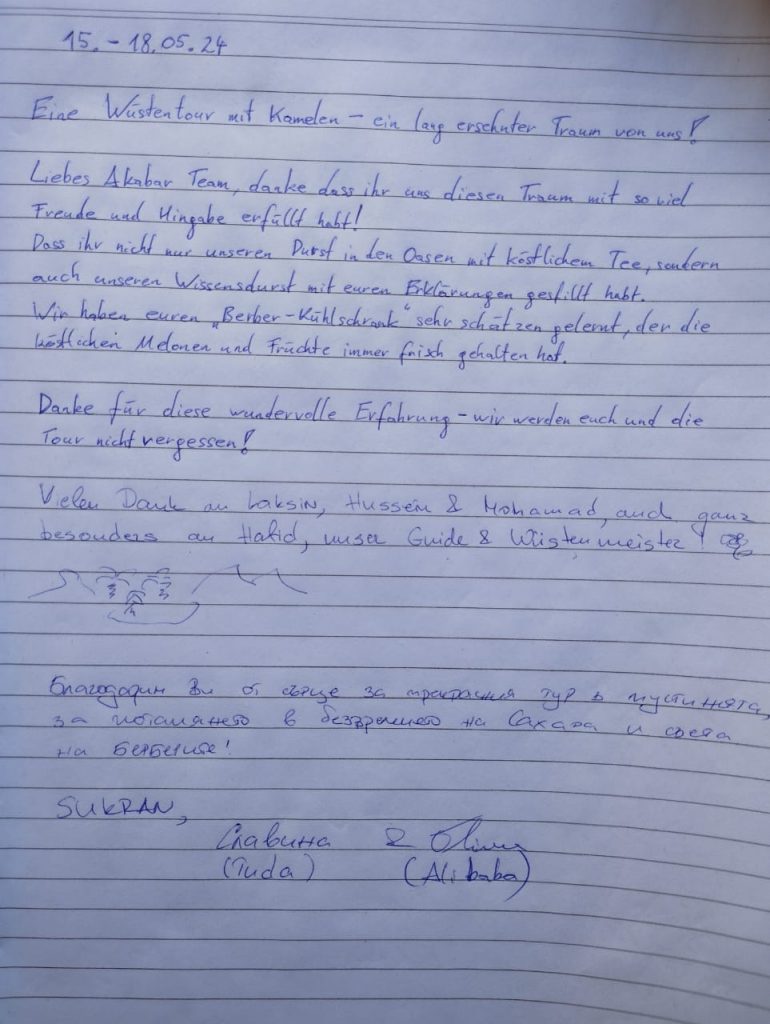 15. - 18.05.24
Eine Wüstentour mit Kamelen – ein lang ersehnter Traum von uns!
Liebes Akabar Team, danke dass ihr uns diesen Traum mit so viel
Freude und Hingabe erfüllt habt!
Dass ihr nicht nur unseren Durst in den Oasen mit köstlichem Tee, sondern
auch unseren Wissensdurst mit euren Erklärungen gestillt habt.
Wir haben euren „Berber-Kühlschrank“ sehr schätzen gelernt, der die
köstlichen Melonen und Früchte immer frisch gehalten hat.
Danke für diese wundervolle Erfahrung – wir werden euch und die
Tour nicht vergessen!
Vielen Dank an Laksin, Hussein & Mohamad, auch ganz
besonders an Hafid, unser Guide & Wüstenmeister!
Благодарим Ви от сърце за прекрасния тур в пустинята,
за потапянето в безвремието на Сахара и света
на берберите!
SUKRAN,
Славина & Oliver
(Tuda) (Ali baba)